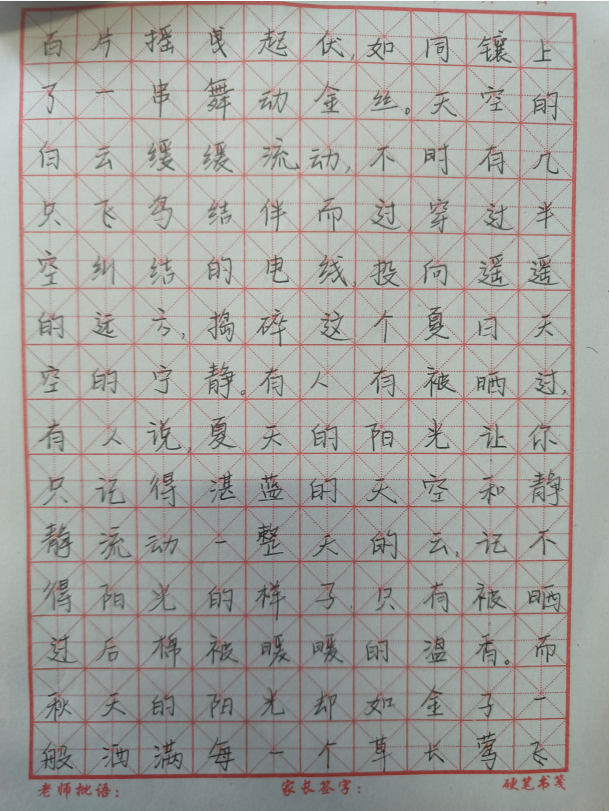 百片摇曳起伏,如同镶上
了一串舞动金丝。天空的
白云缓缓流动,不时有几
只飞鸟结伴而过,穿过半
空纠结的电线,投向遥遥
的远方,捣碎这个夏日天
空的宁静。有人有被晒过,
有人说,夏天的阳光让你
只记得湛蓝的天空和静
静流动一整天的云,记不
得阳光的样子,只有被晒
过后棉被暖暖的温香。而
秋天的阳光却如金子一
般洒满每一个草长莺飞
老师批语: 家长签字: 硬笔书笺